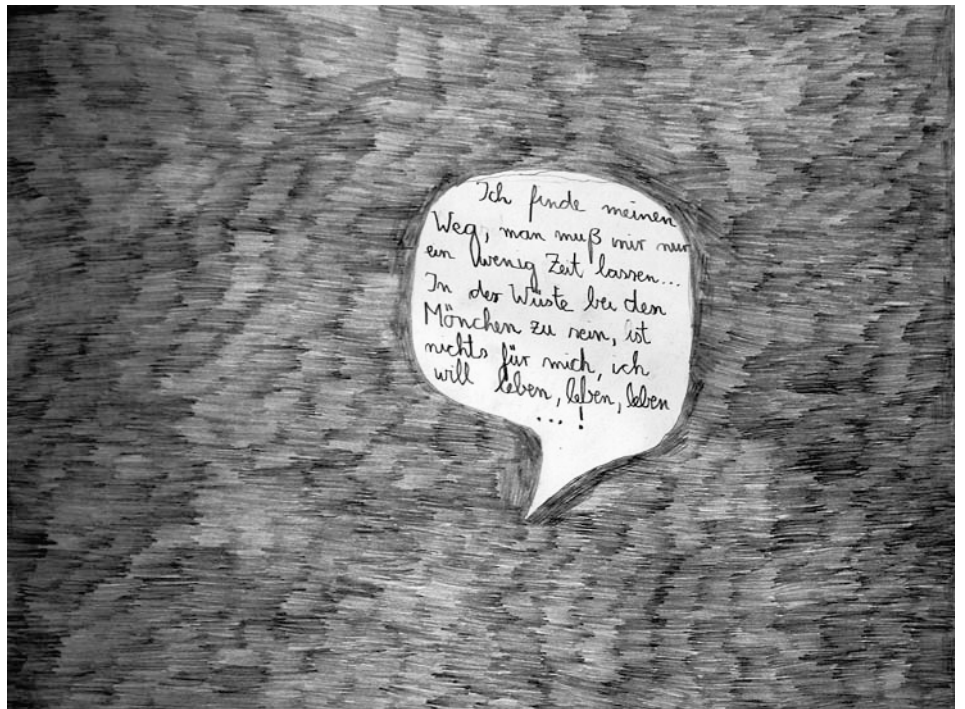 Ich finde meinen
Weg, man muß mir nur
ein wenig Zeit lassen...
In der Wüste bei den
Mönchen zu sein, ist
nichts für mich, ich
will leben, leben, leben
... !